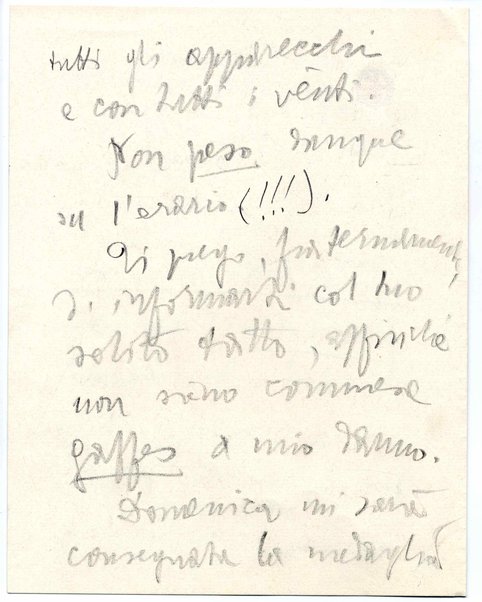 tutti gli apparecchi
e con tutti i vènti.
Non peso dunque
su l'erario (!!!).
Ti prego, fraternamente,
d'informarti col tuo
solito tatto, affinché
non sieno commesse
gaffes a mio danno.
Domenica mi sarà
consegnata la medaglia